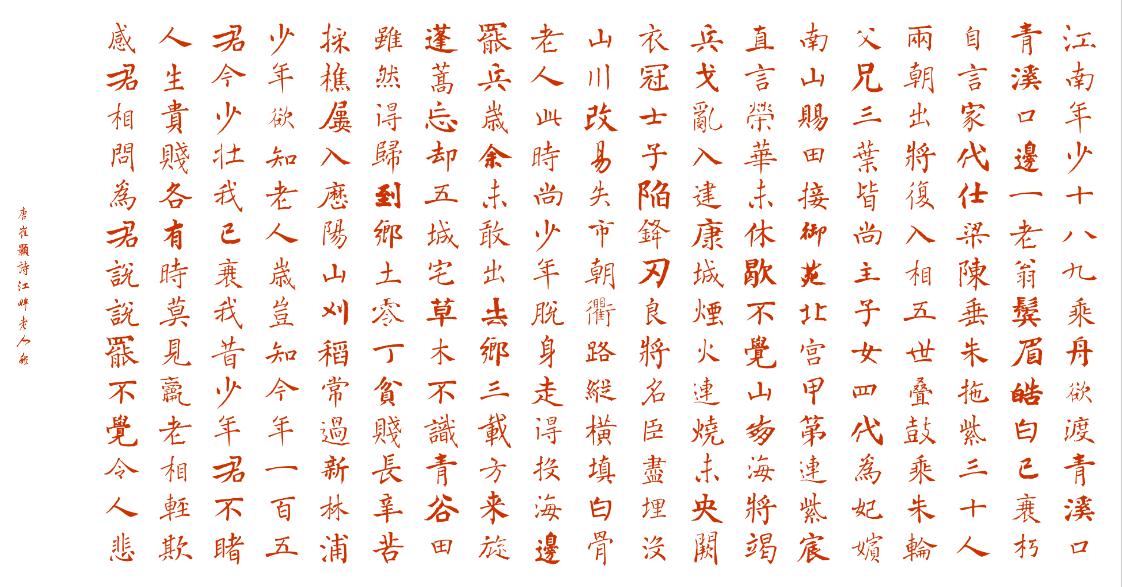 江南年少十八九乘舟欲渡青溪口
青溪口邊一老翁鬓眉皓白已衰朽
自言家代仕梁陳垂朱拖紫三十人
兩朝出將復入相五世疊鼓乘朱輪
父兄三葉皆尚主子女四代為妃嬪
南山賜田接御苑北宮甲第連紫宸
直言榮華未休歇不覺山崩海將竭
兵戈亂入建康城煙火連燒未央闕
衣冠士子陷鋒刃良將名臣盡埋沒
山川改易失市朝衢路縱橫填白骨
老人此時尚少年脫身走得投海邊
罷兵歲余未敢出去鄉三載方来旋
蓬蒿忘却五城宅草木不識青谷田
雖然得歸到鄉土零丁貧賤長辛苦
採樵屢入歷陽山刈稻常過新林浦
少年欲知老人歲豈知今年一百五
君今少壯我已衰我昔少年君不睹
人生貴賤各有時莫見羸老相輕欺
感君相問為君說說罷不覺令人悲
唐崔顥詩江畔老人愁